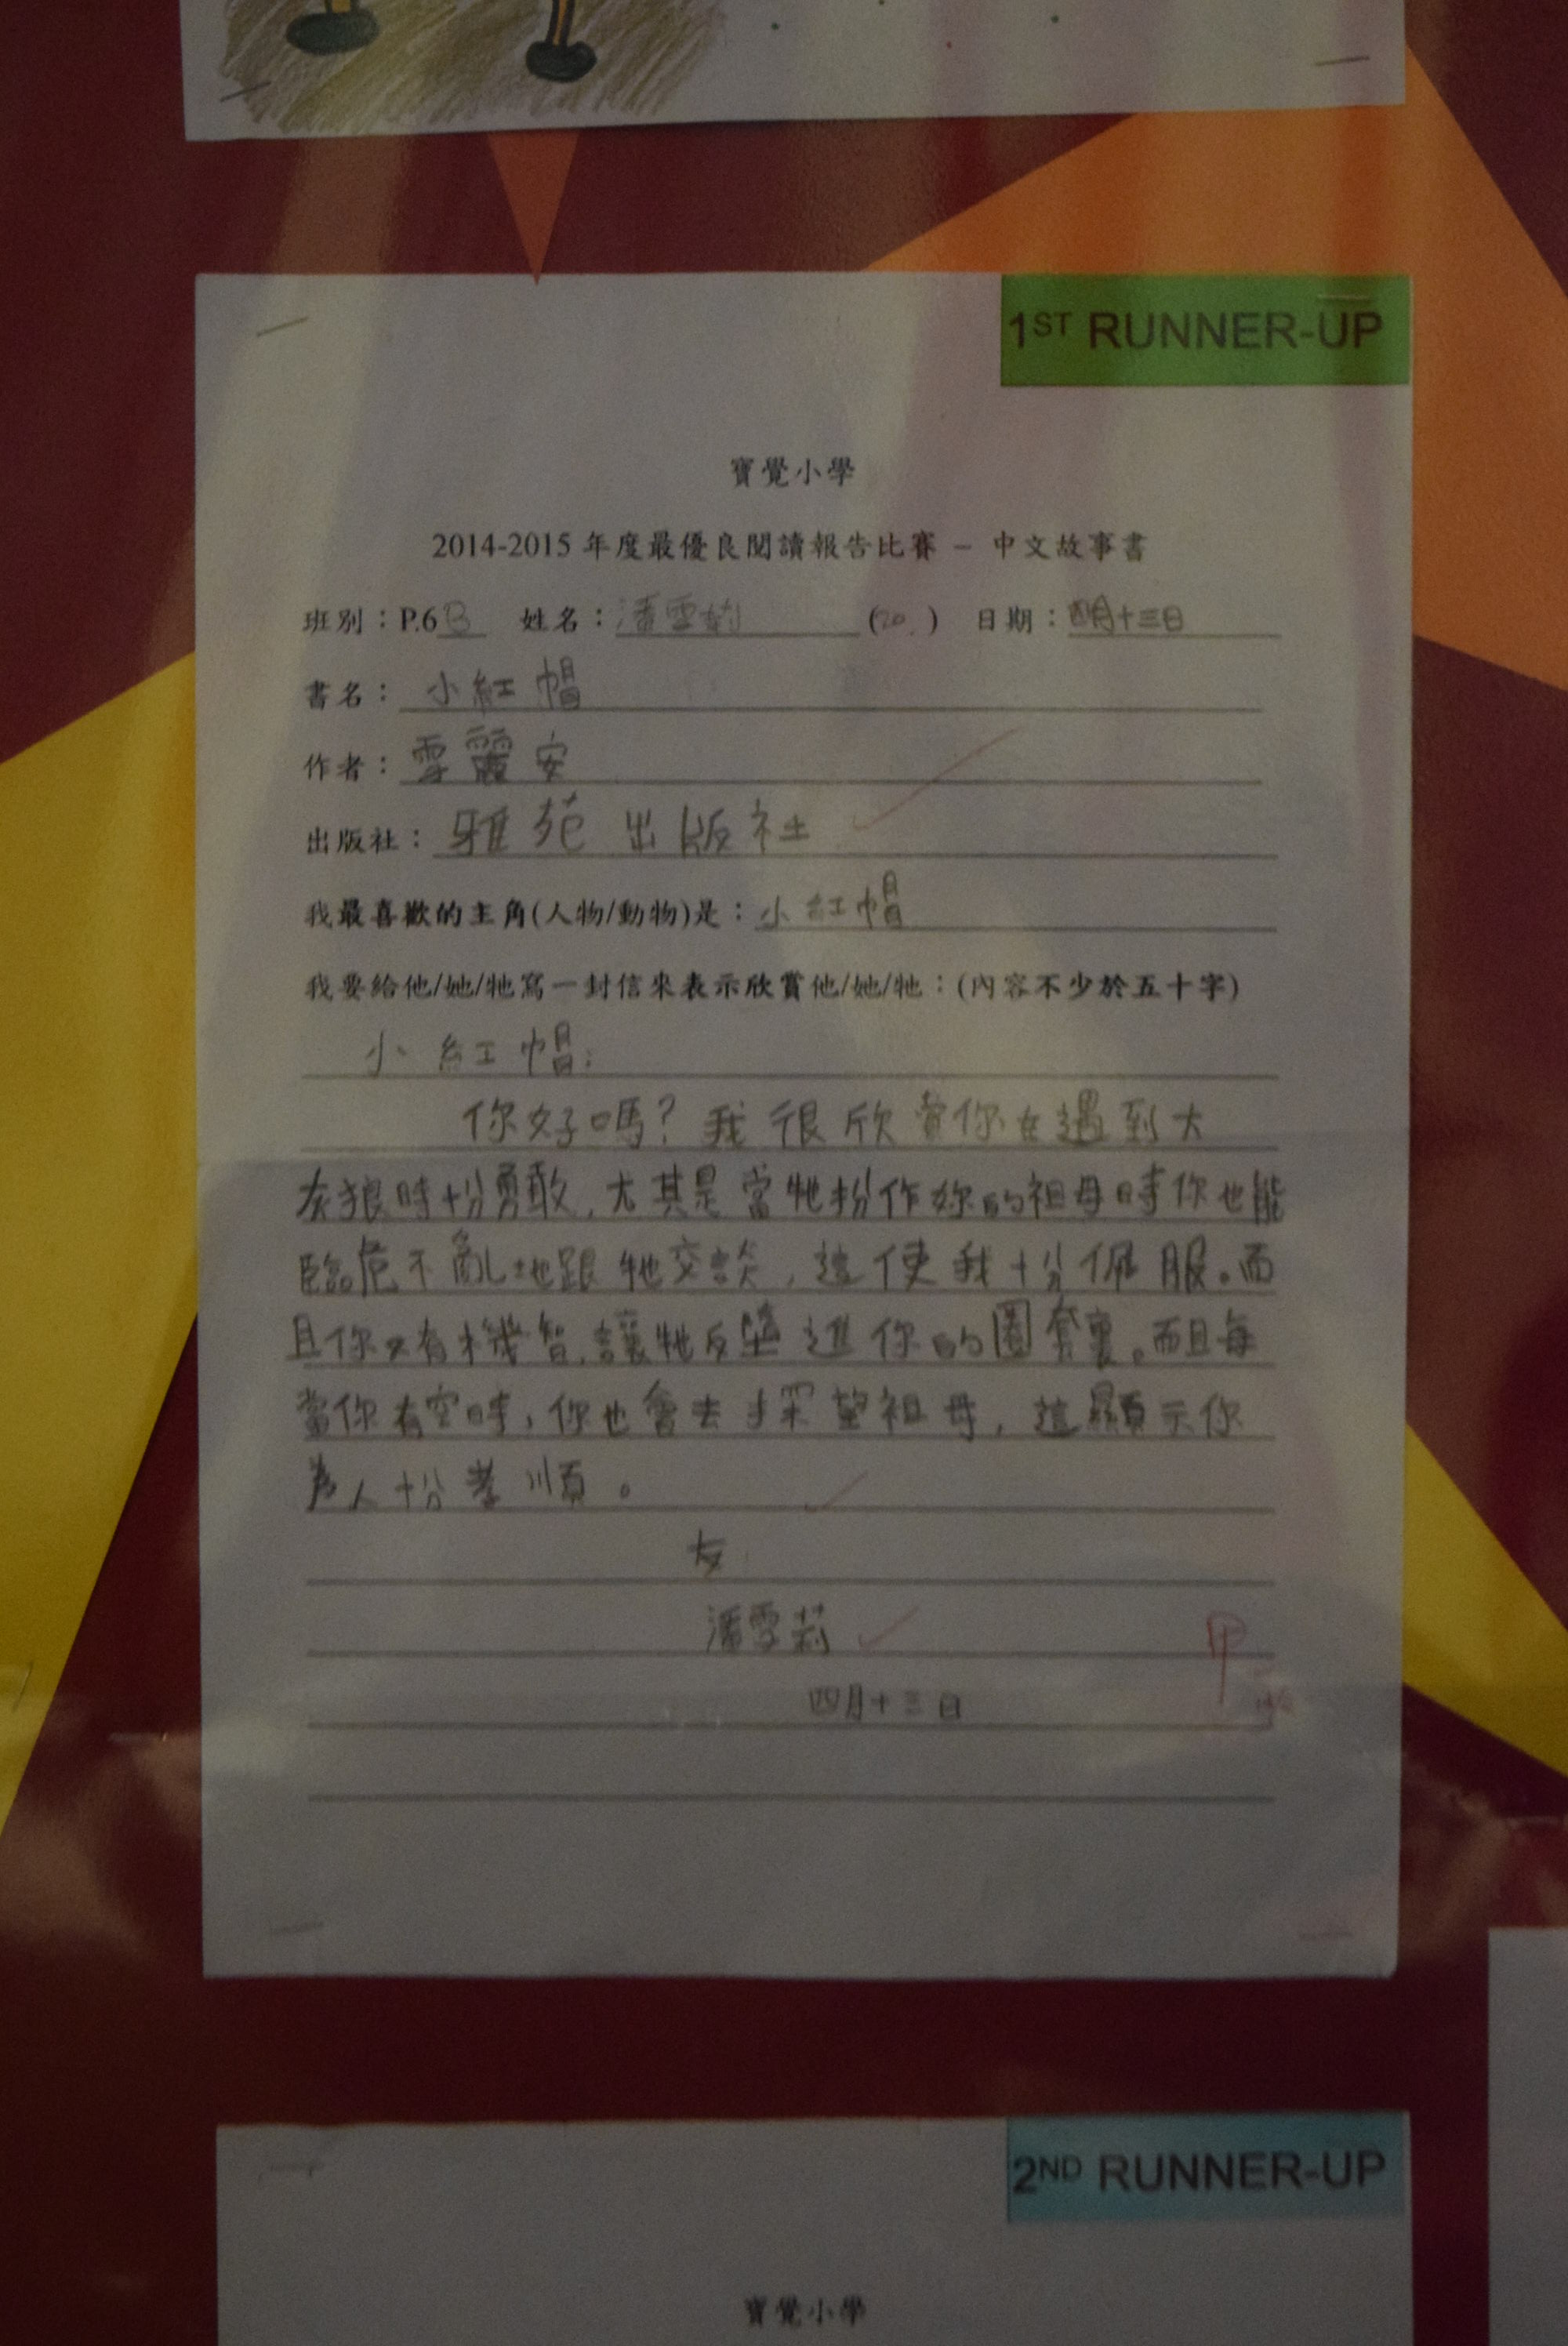 1ST RUNNER-UP
寶覺小學
2014-2015 年度最優良閱讀報告比賽 － 中文故事書
班別：P.6B 姓名：潘雪莉 (20.) 日期：四月十三日
書名：小紅帽
作者：雪麗安
出版社：雅苑出版社
我最喜歡的主角(人物/動物)是：小紅帽
我要給他/她/牠寫一封信來表示欣賞他/她/牠：(內容不少於五十字)
小紅帽：
你好嗎？我很欣賞你在遇到大
灰狼時十分勇敢，尤其是當牠扮作妳的祖母時你也能
臨危不亂地跟牠交談，這使我十分佩服。而
且你又有機智，讓牠反墮進你的圈套裏。而且每
當你有空時，你也會去探望祖母，這顯示你
為人十分孝順。
友
潘雪莉
四月十三日
甲
2ND RUNNER-UP
寶覺小學